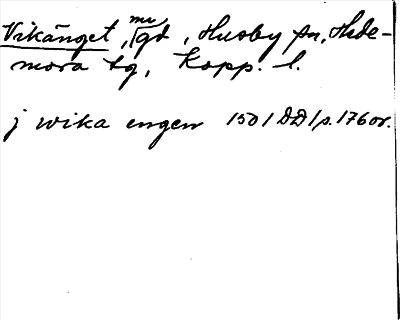 Vikänget, mu gd, Husby sn, Hede-
mora tg, Kopp. l.
j wika engen 1501 DD1 p. 176 or.